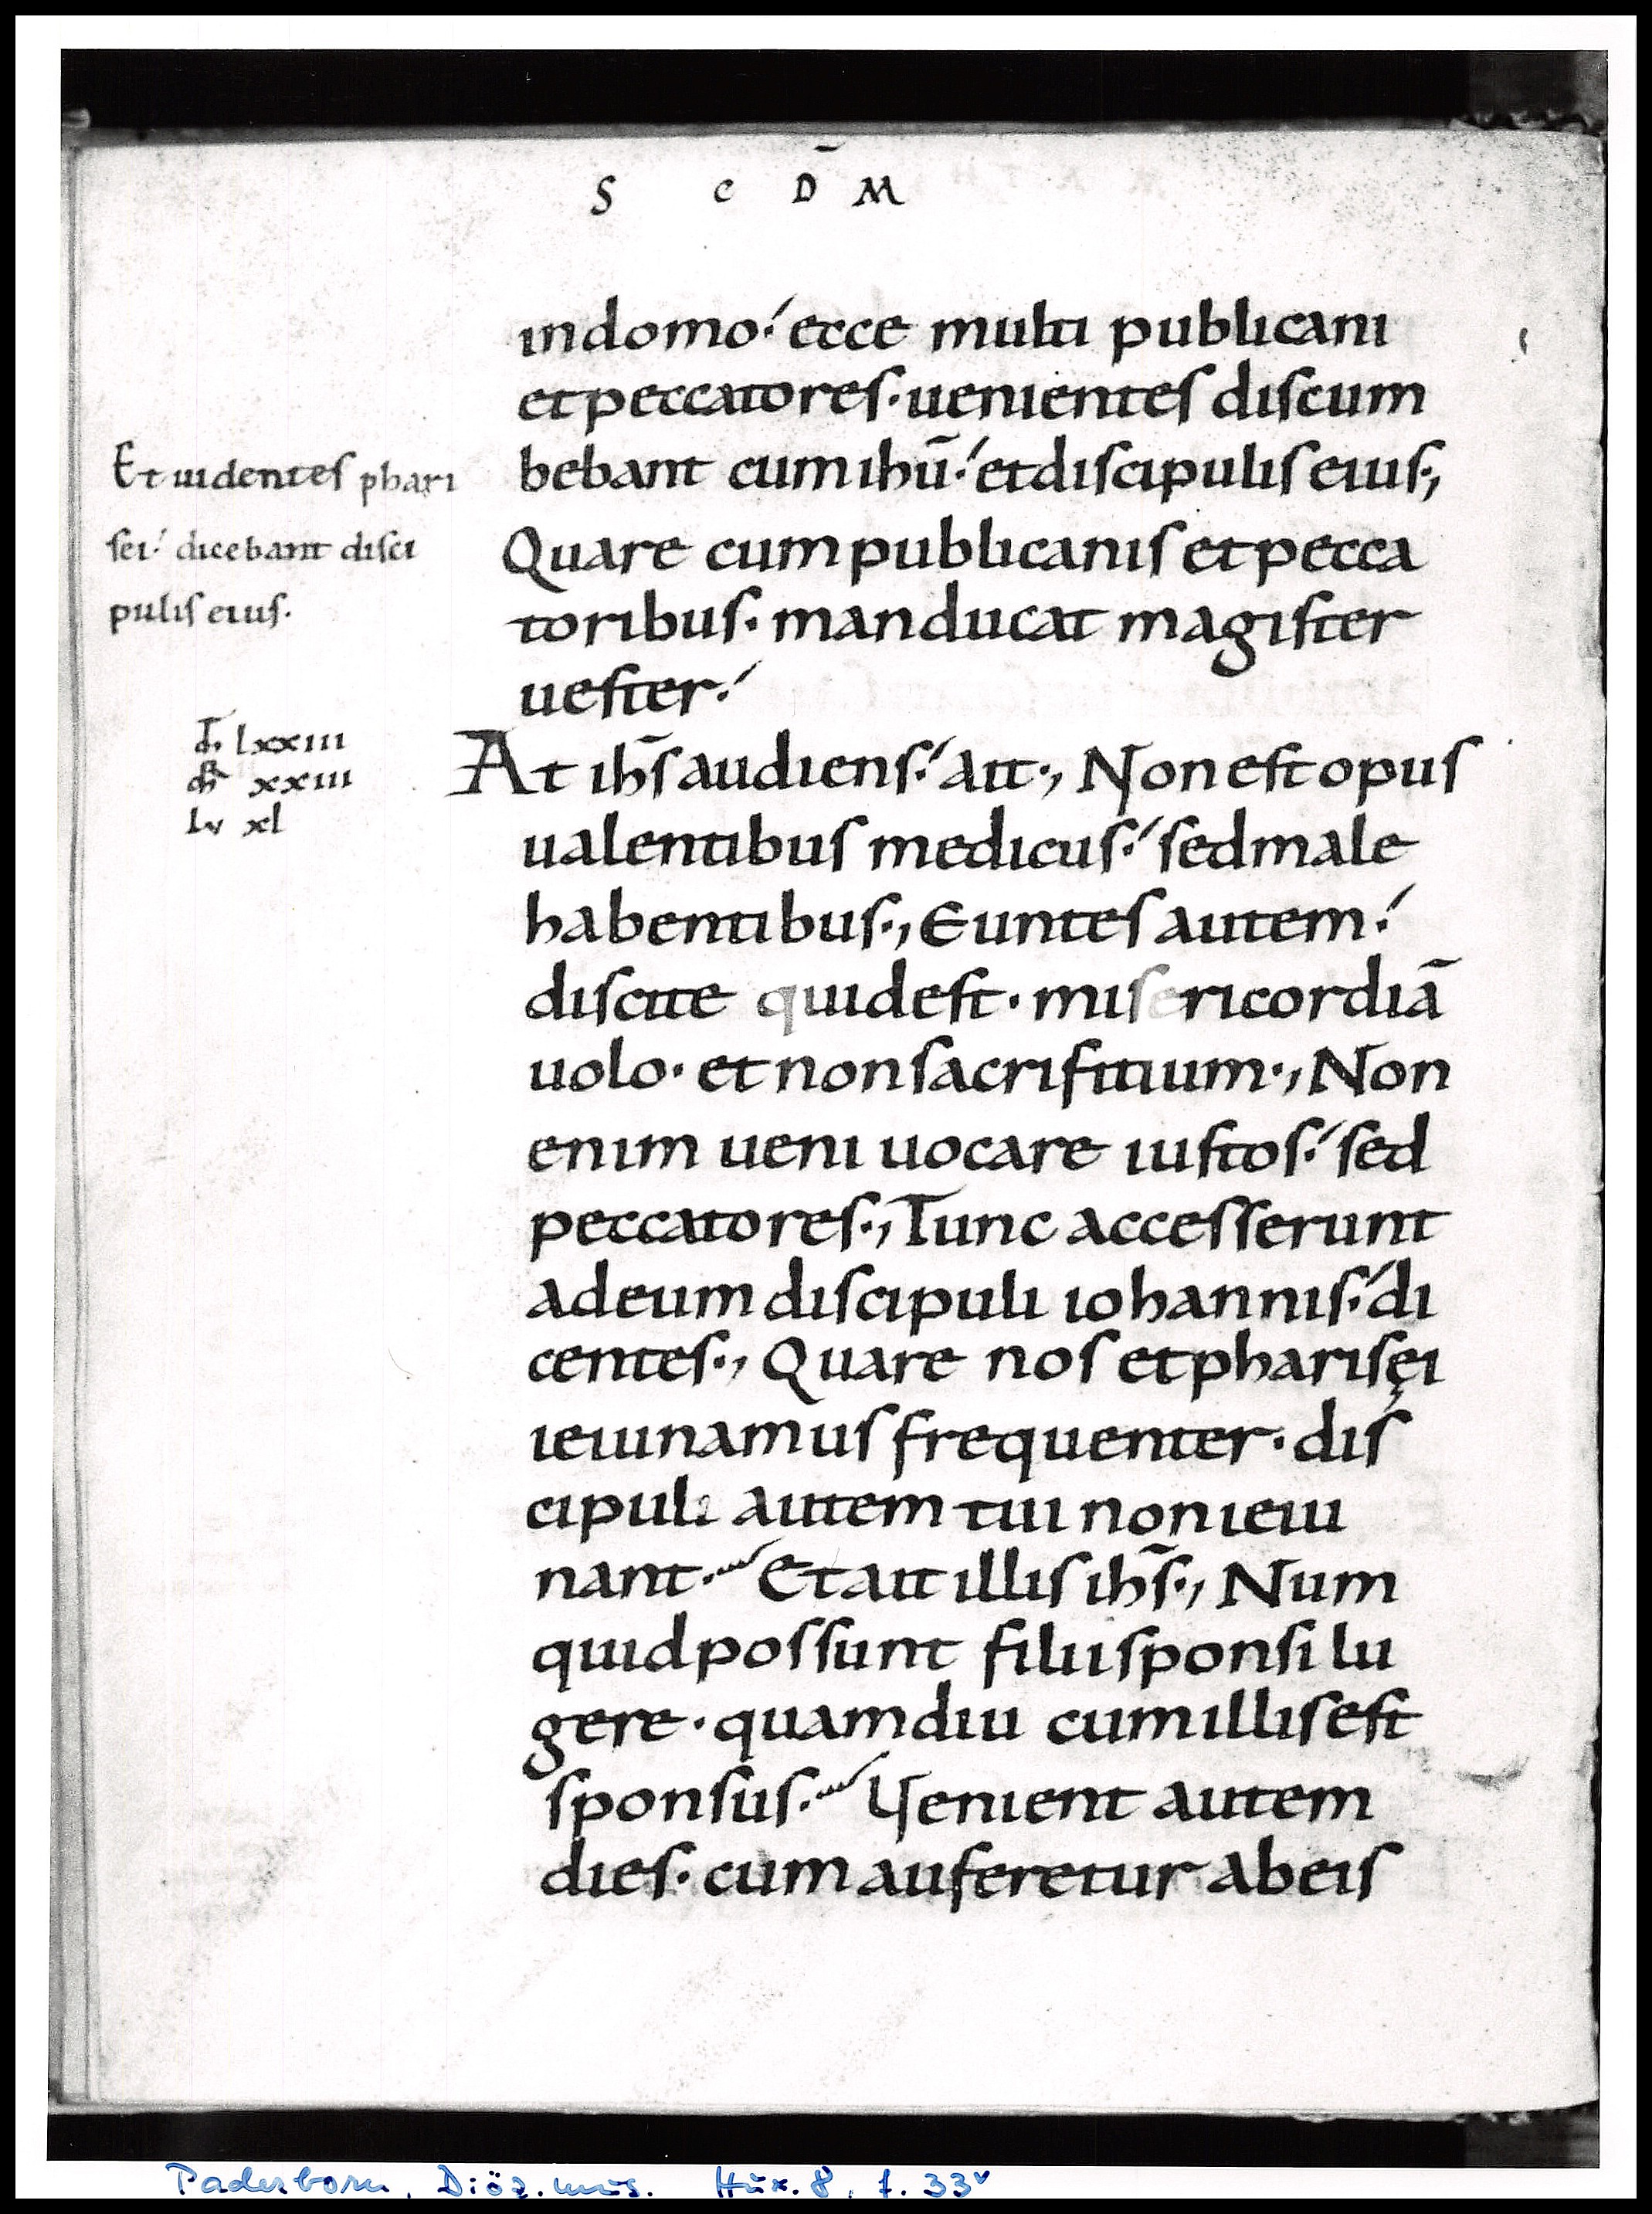 S C D̄ M
indomo· ecce multi publicani
etpeccatores· uenientes discum
bebant cumihū· etdiscipulis eius·,
Et uidentes phari
sei· dicebant disci
pulis eius·
Quare cumpublicanis etpecca
toribus· manducat magister
uester·
At ihs̄ audiens· ait·, Nonestopus
lxxiii
xxiii
xl
ualentibus medicus· sedmale
habentibus·, Euntes autem·
discite quidest· misericordiā
uolo· etnonsacrifitium·, Non
enim ueni uocare iustos· sed
peccatores·, Tunc accesserunt
adeumdiscipuli iohannis· di
centes·, Quare nos etpharisęi
ieiunamus frequenter· dis
cipuli autem tui nonieiu
nant· Etait illis ihs̄·, Num
quidpossunt filiisponsi lu
gere· quamdiu cumillisest
sponsus· Uenient autem
dies· cumauferetur abeis
Paderborn, Diöz.mus. Hux. 8, f. 33v